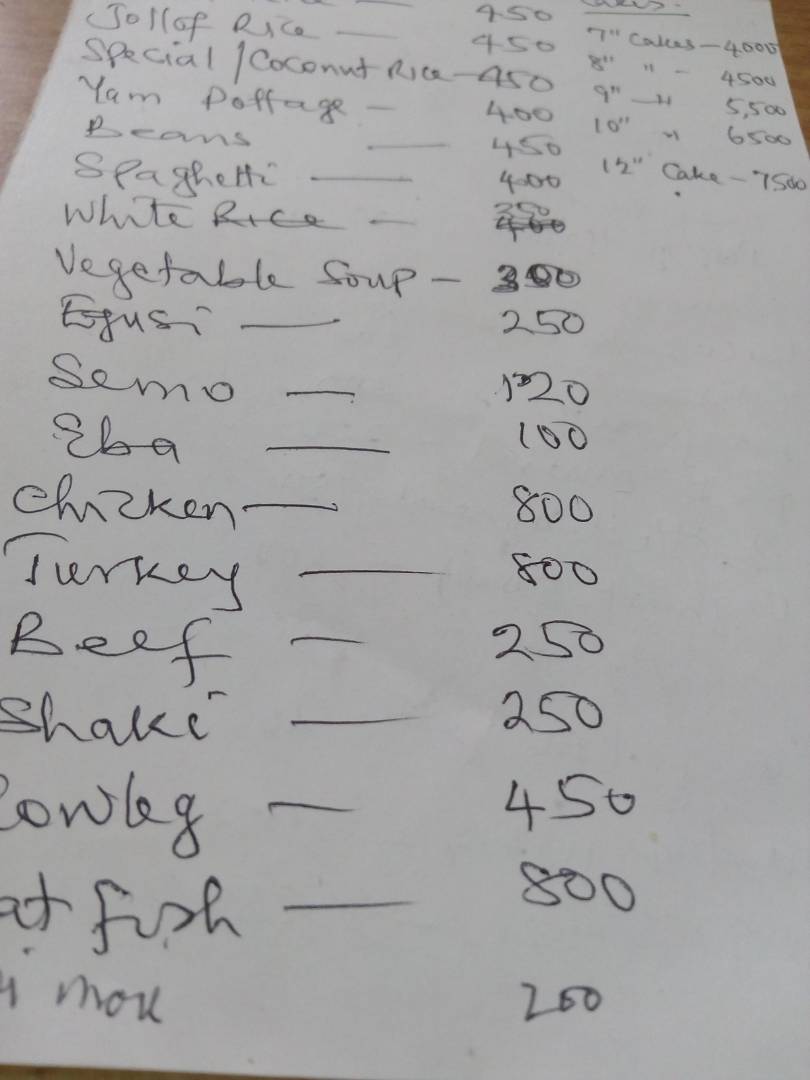 450
Jollof Rice — 450
Special/Coconut Rice – 450
Yam Pottage – 400
Beans — 450
Spaghetti — 400
White Rice – 250
Vegetable Soup – 300
Egusi — 250
Semo — 120
Eba — 100
Chicken — 800
Turkey — 800
Beef — 250
Shaki — 250
Cowleg — 450
at fish — 800
200
7" Cakes – 4000
8" " – 4500
9" – " 5,500
10" " 6500
12" Cake – 7500